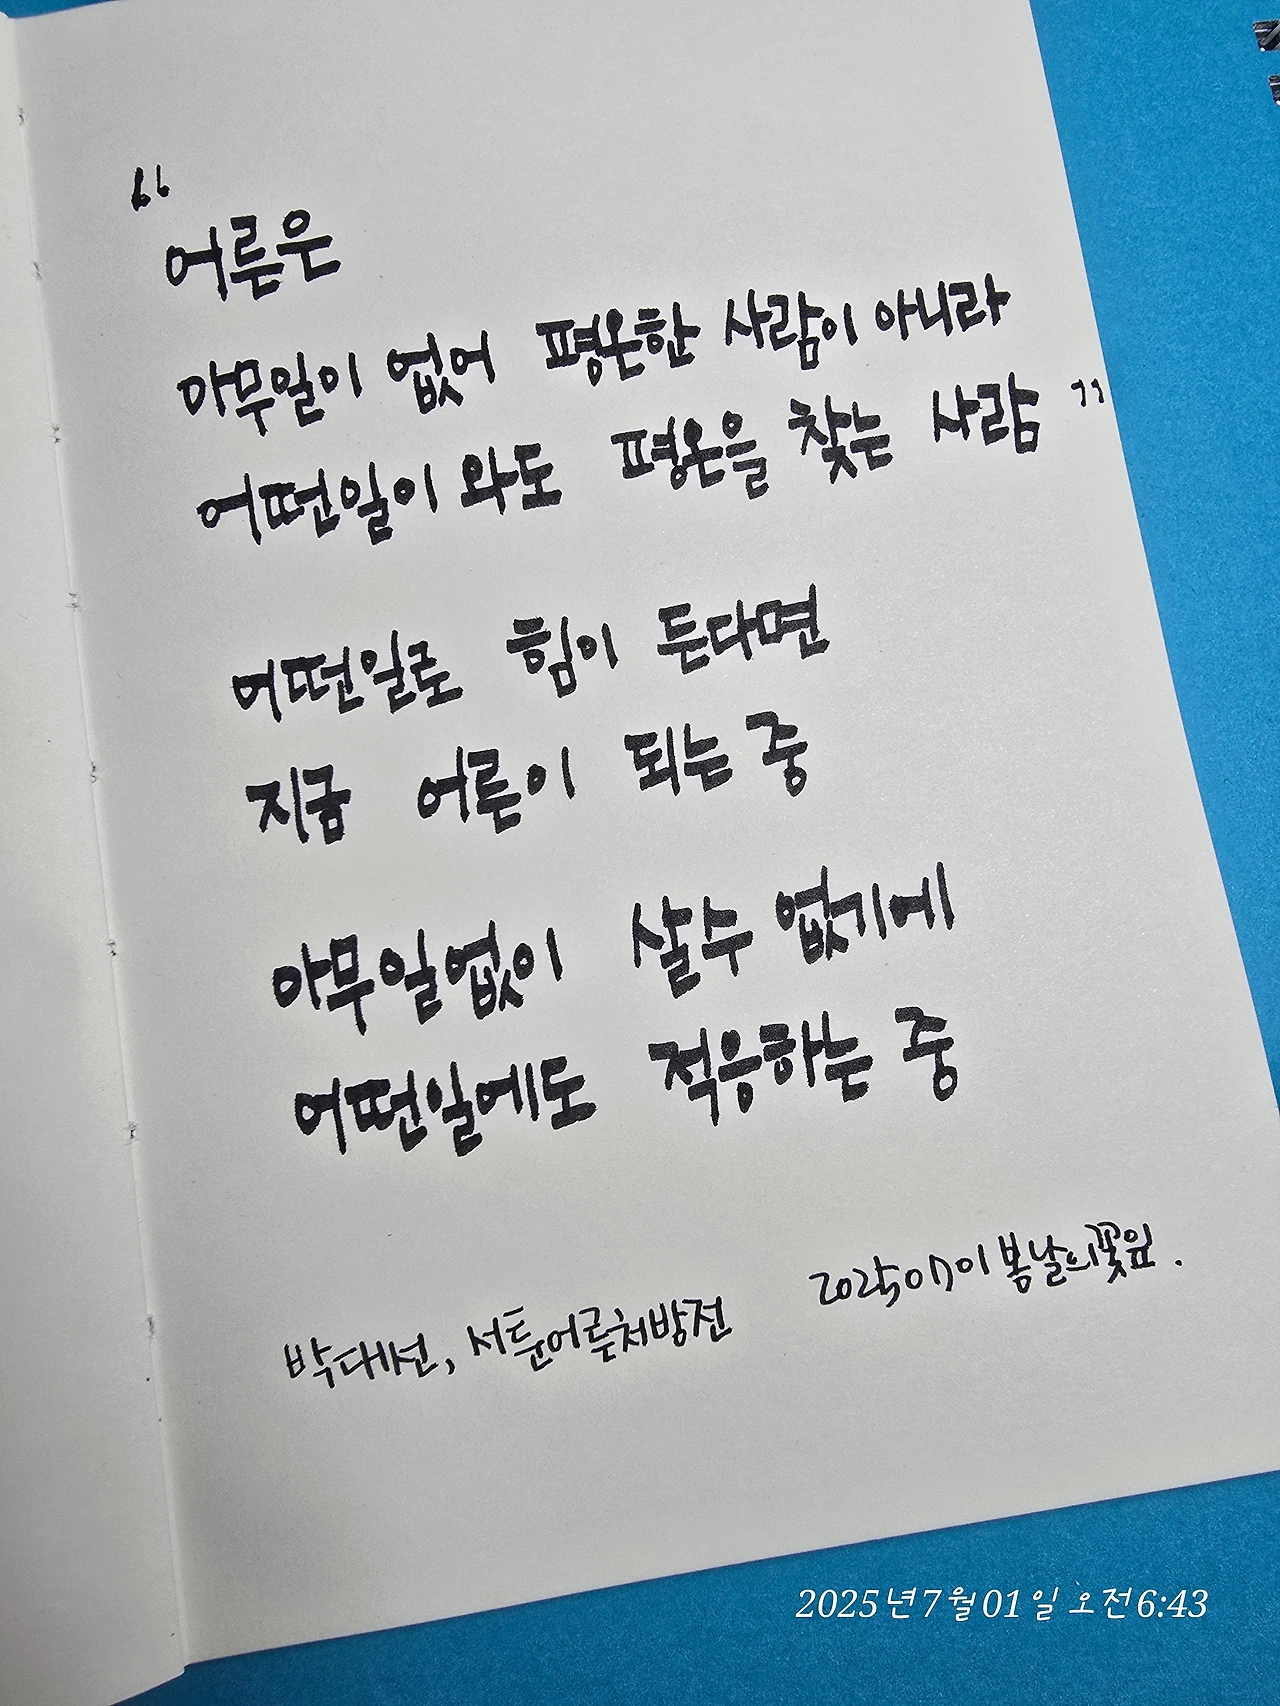 "
어른은
아무일이 없어 평온한 사람이 아니라
어떤일이 와도 평온을 찾는 사람 "
어떤일로 힘이 든다면
지금 어른이 되는 중
아무일없이 살수 없기에
어떤일에도 적응하는 중
2025,07,01 봄날의꽃잎.
박대선, 서툰어른처방전
2025년7월01일 오전6:43